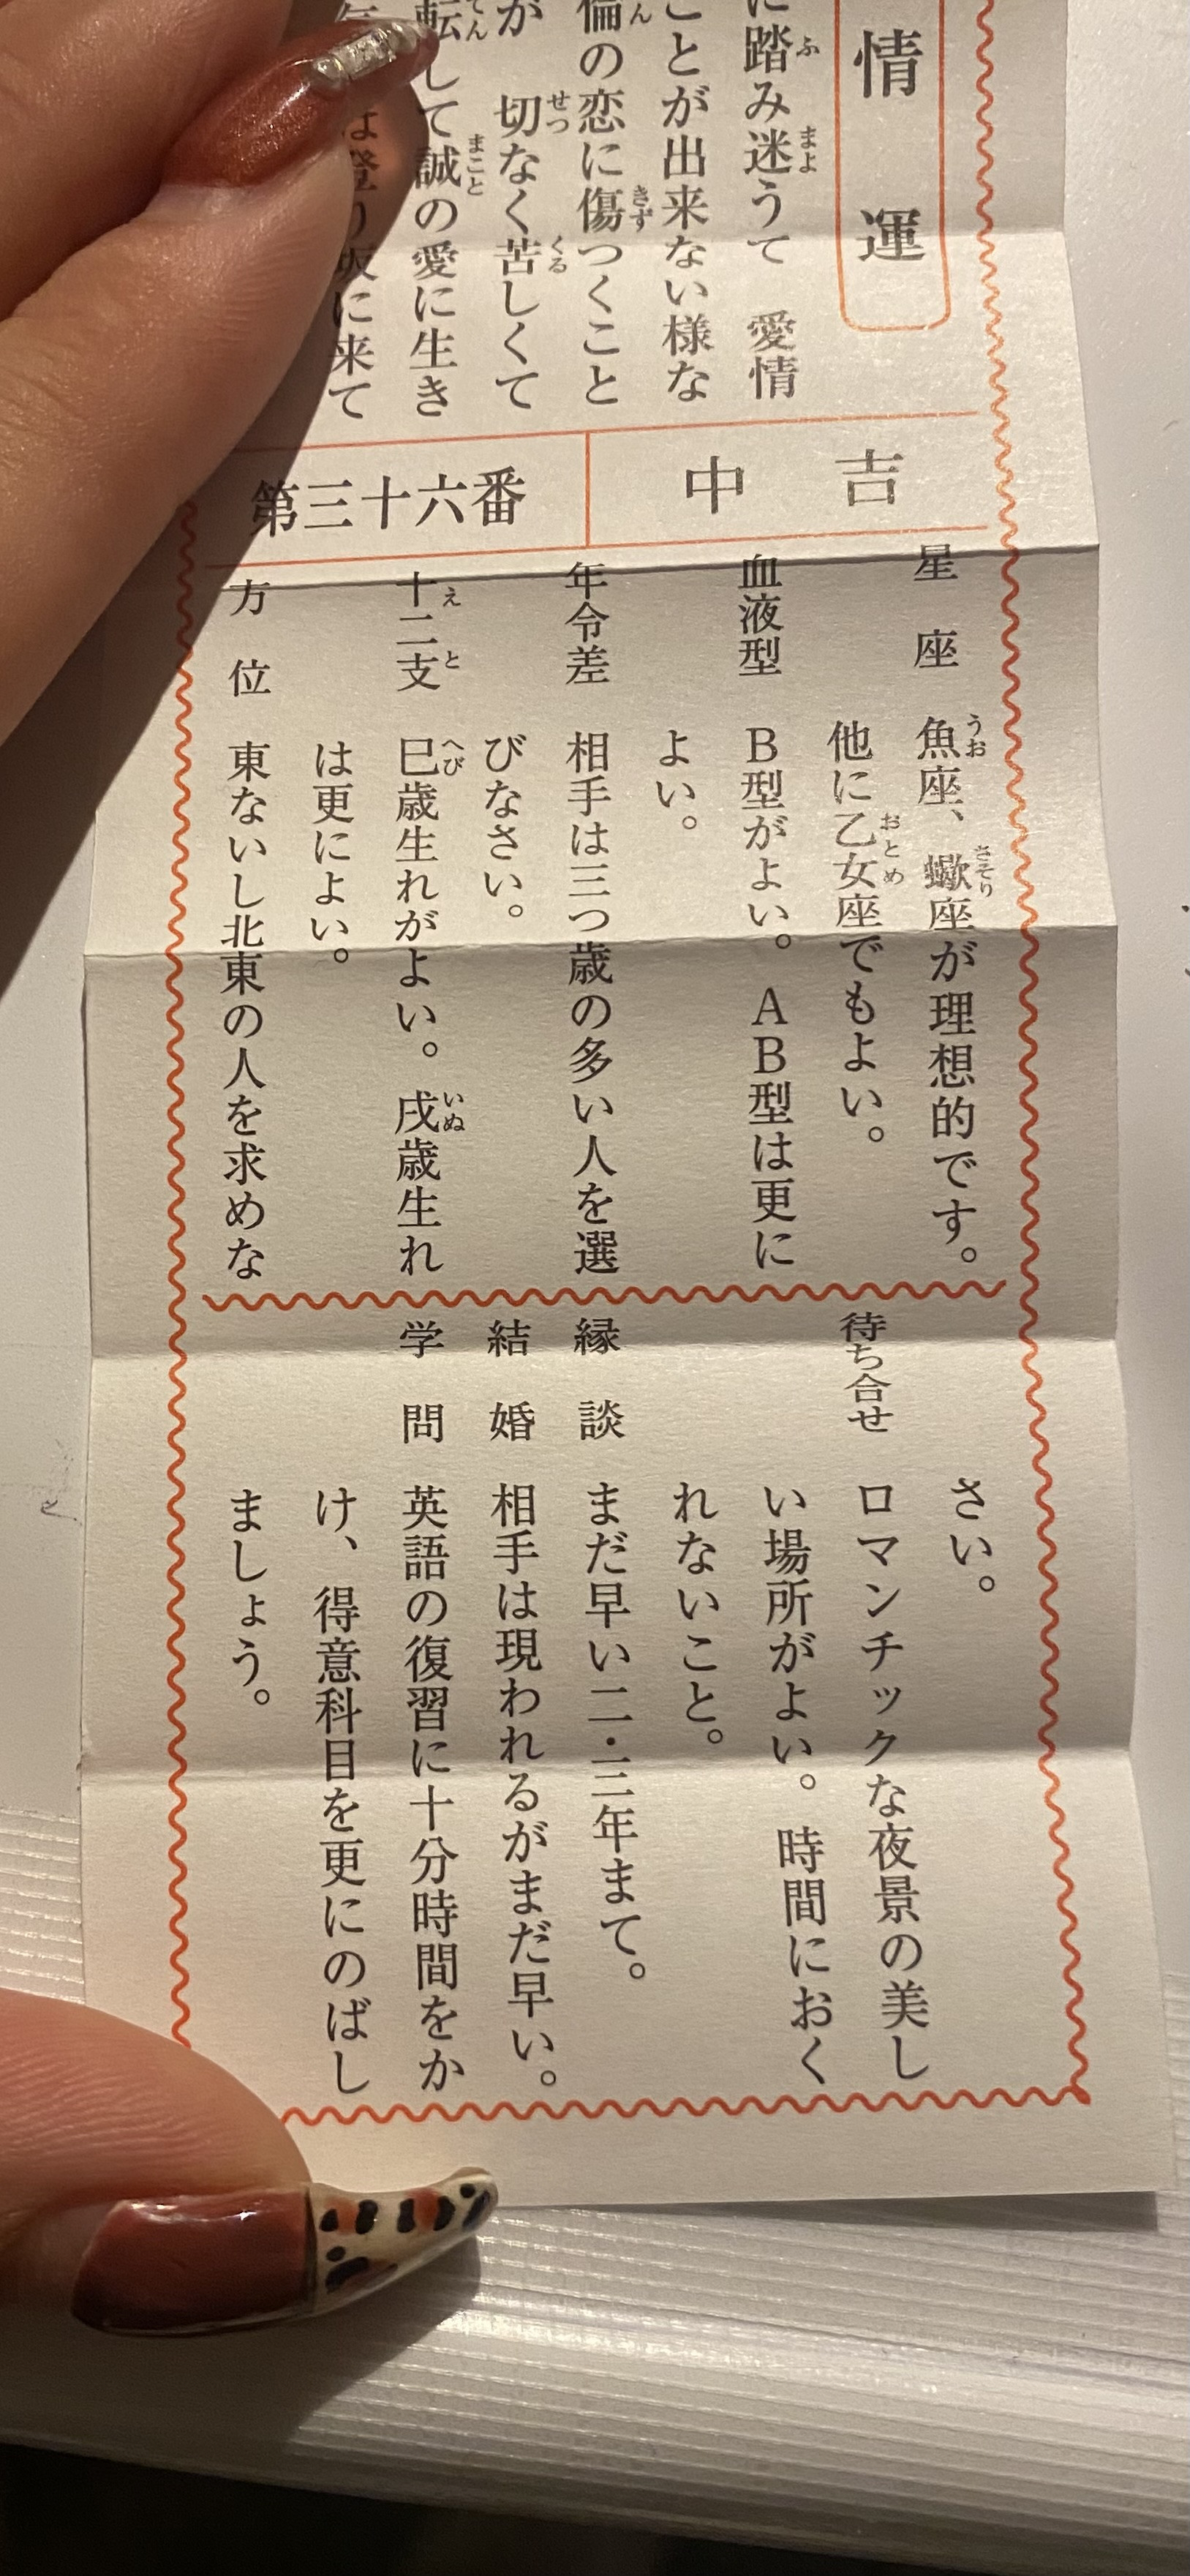 情運
に踏み迷うて 愛情
ことが出来ない様な
倫の恋に傷つくこと
が 切なく苦しくて
転して誠の愛に生き
は登り坂に来て
中吉
第三十六番
星座 魚座、蠍座が理想的です。
他に乙女座でもよい。
血液型 B型がよい。AB型は更に
よい。
年令差 相手は三つ歳の多い人を選
びなさい。
十二支 巳歳生れがよい。戌歳生れ
は更によい。
方位 東ないし北東の人を求めな
さい。
待ち合せ ロマンチックな夜景の美し
い場所がよい。時間におく
れないこと。
縁談 まだ早い二・三年まて。
結婚 相手は現われるがまだ早い。
学問 英語の復習に十分時間をか
け、得意科目を更にのばし
ましょう。